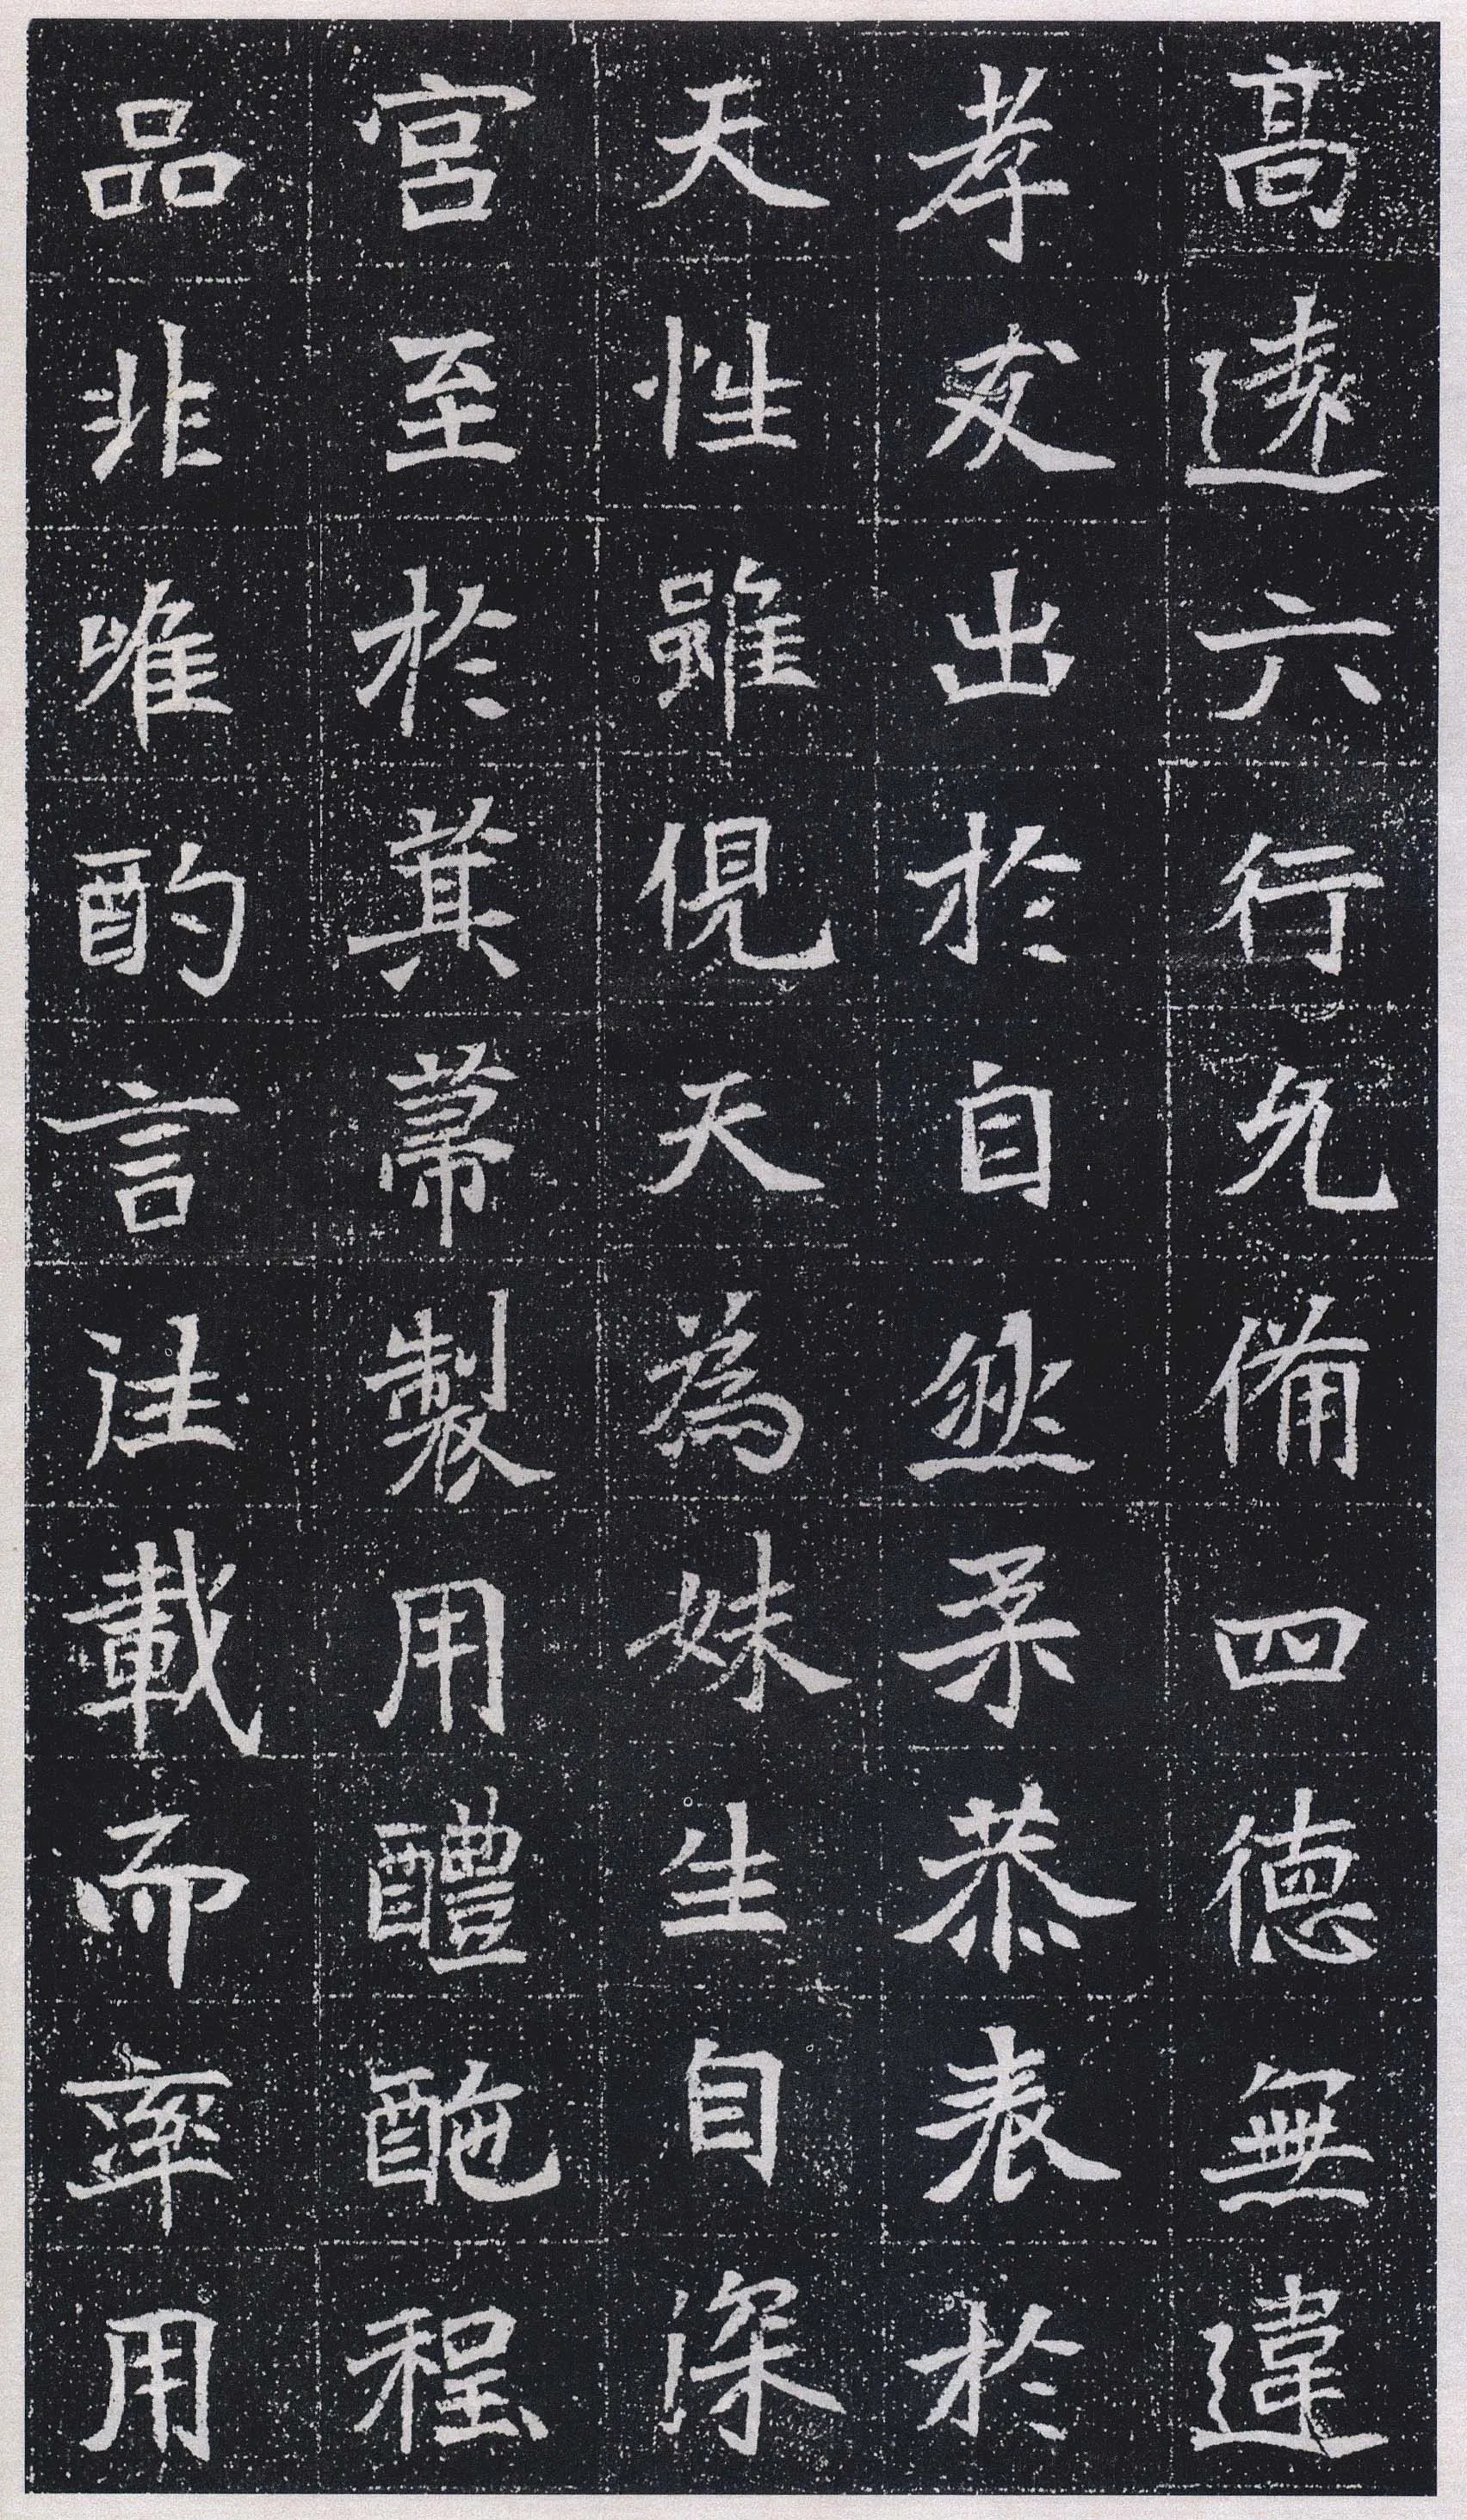 高遠六行允備四德無違
孝友出於自然柔恭表於
天性雖俔天為妹生自深
宮至於箕帚製用醴酏程
品非唯酌言注載而率用